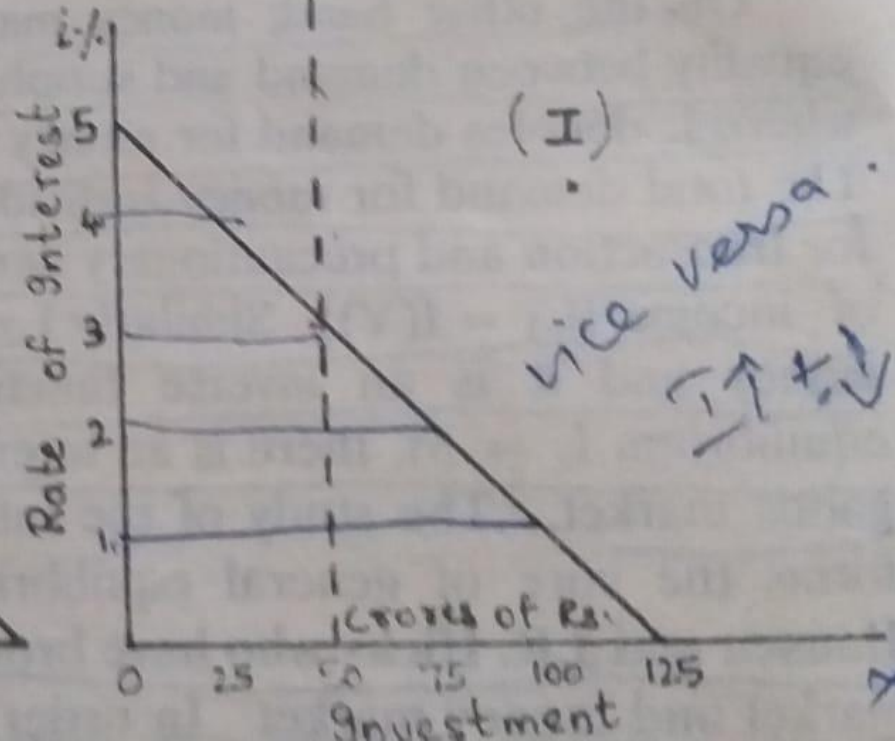 i%
5
4
3
2
1
Rate of Interest
(I)
vice versa.
I↑ + i↓
Crores of Rs.
0 25 50 75 100 125
Investment